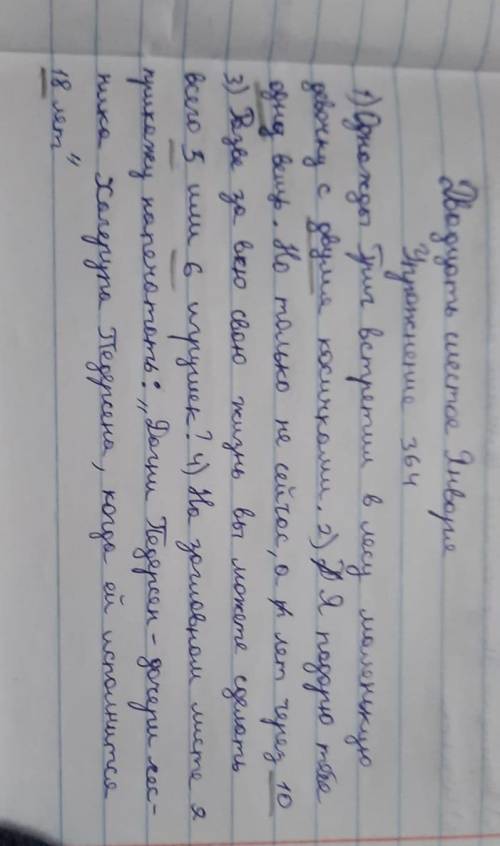 Двадцать шестое Января
Упражнение 364
1) Однажды Григ встретил в лесу маленькую
девочку с двумя косичками. 2) Я подарю тебе
одну вещь. Но только не сейчас, а лет через 10
3) Разве за всю свою жизнь вы можете сделать
всего 5 или 6 игрушек? 4) На заглавном листе я
прикажу напечатать: „Дагни Педерсен - дочери лес-
ника Хагерупа Педерсена, когда ей исполнится
18 лет"